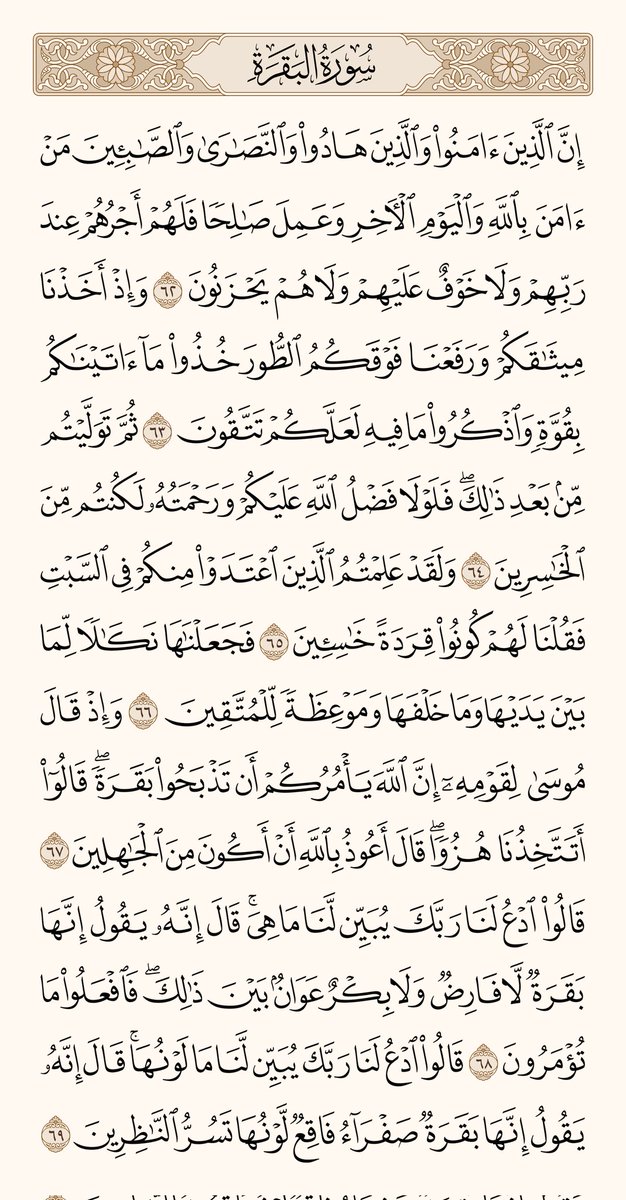 سُورَةُ البَقَرَةِ
إِنَّ ٱلَّذِينَ ءَامَنُوا۟ وَٱلَّذِينَ هَادُوا۟ وَٱلنَّصَـٰرَىٰ وَٱلصَّـٰبِـِٔينَ مَنْ
ءَامَنَ بِٱللَّهِ وَٱلْيَوْمِ ٱلْـَٔاخِرِ وَعَمِلَ صَـٰلِحًا فَلَهُمْ أَجْرُهُمْ عِندَ
رَبِّهِمْ وَلَا خَوْفٌ عَلَيْهِمْ وَلَا هُمْ يَحْزَنُونَ ٦٢ وَإِذْ أَخَذْنَا
مِيثَـٰقَكُمْ وَرَفَعْنَا فَوْقَكُمُ ٱلطُّورَ خُذُوا۟ مَآ ءَاتَيْنَـٰكُم
بِقُوَّةٍ وَٱذْكُرُوا۟ مَا فِيهِ لَعَلَّكُمْ تَتَّقُونَ ٦٣ ثُمَّ تَوَلَّيْتُم
مِّنۢ بَعْدِ ذَٰلِكَ ۖ فَلَوْلَا فَضْلُ ٱللَّهِ عَلَيْكُمْ وَرَحْمَتُهُۥ لَكُنتُم مِّنَ
ٱلْخَـٰسِرِينَ ٦٤ وَلَقَدْ عَلِمْتُمُ ٱلَّذِينَ ٱعْتَدَوْا۟ مِنكُمْ فِى ٱلسَّبْتِ
فَقُلْنَا لَهُمْ كُونُوا۟ قِرَدَةً خَـٰسِـِٔينَ ٦٥ فَجَعَلْنَـٰهَا نَكَـٰلًا لِّمَا
بَيْنَ يَدَيْهَا وَمَا خَلْفَهَا وَمَوْعِظَةً لِّلْمُتَّقِينَ ٦٦ وَإِذْ قَالَ
مُوسَىٰ لِقَوْمِهِۦٓ إِنَّ ٱللَّهَ يَأْمُرُكُمْ أَن تَذْبَحُوا۟ بَقَرَةً ۖ قَالُوٓا۟
أَتَتَّخِذُنَا هُزُوًا ۖ قَالَ أَعُوذُ بِٱللَّهِ أَنْ أَكُونَ مِنَ ٱلْجَـٰهِلِينَ ٦٧
قَالُوا۟ ٱدْعُ لَنَا رَبَّكَ يُبَيِّن لَّنَا مَا هِىَ ۚ قَالَ إِنَّهُۥ يَقُولُ إِنَّهَا
بَقَرَةٌ لَّا فَارِضٌ وَلَا بِكْرٌ عَوَانٌۢ بَيْنَ ذَٰلِكَ ۖ فَٱفْعَلُوا۟ مَا
تُؤْمَرُونَ ٦٨ قَالُوا۟ ٱدْعُ لَنَا رَبَّكَ يُبَيِّن لَّنَا مَا لَوْنُهَا ۚ قَالَ إِنَّهُۥ
يَقُولُ إِنَّهَا بَقَرَةٌ صَفْرَآءُ فَاقِعٌ لَّوْنُهَا تَسُرُّ ٱلنَّـٰظِرِينَ ٦٩